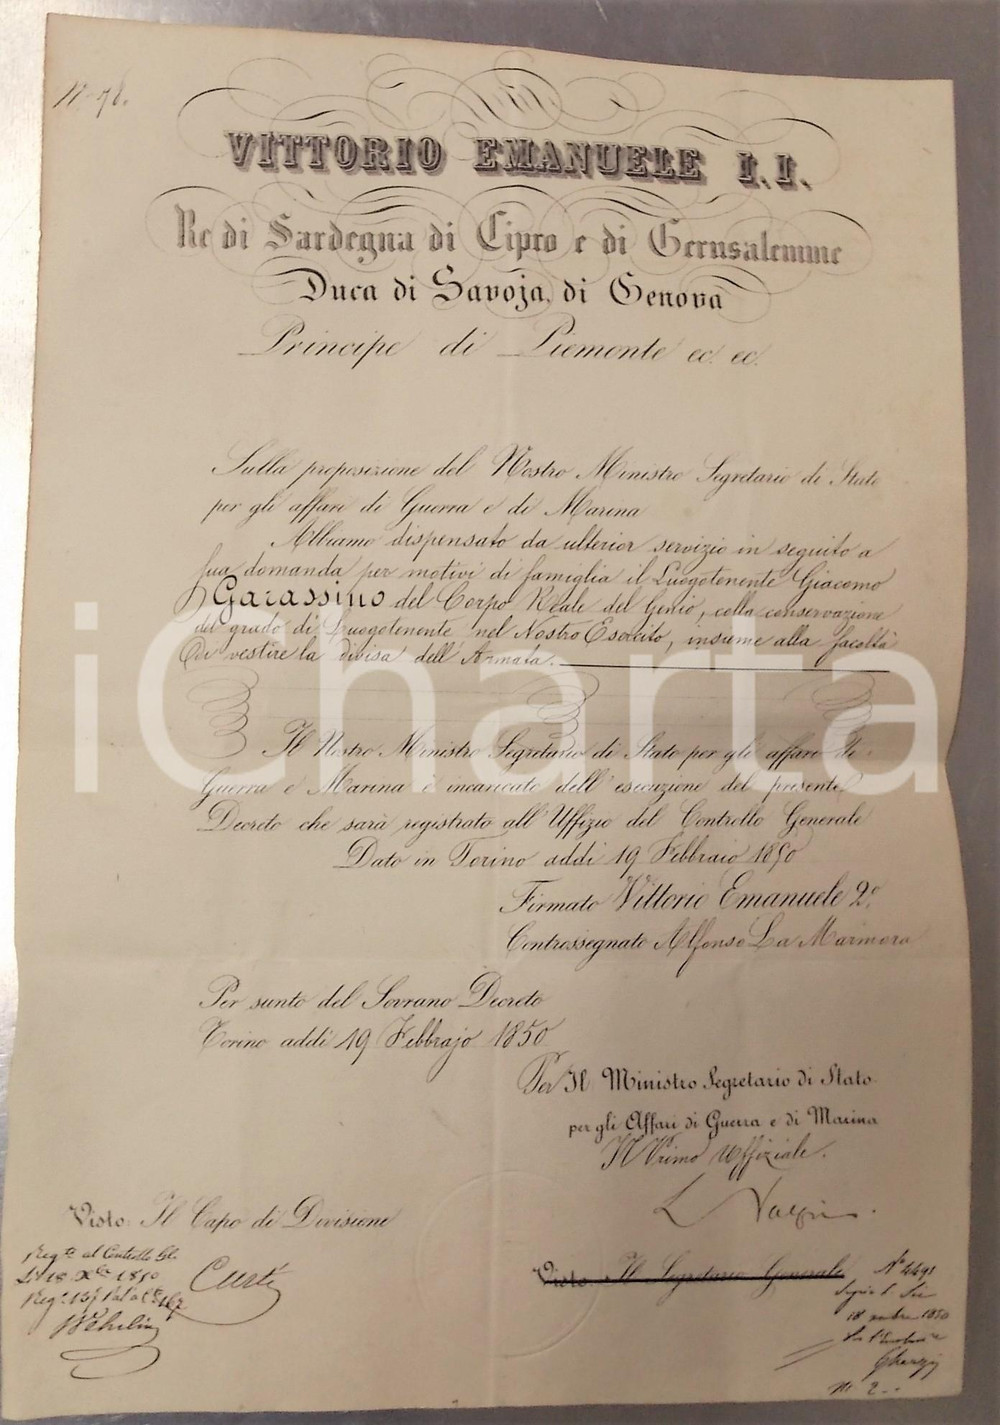 N. 78.
VITTORIO EMANUELE I.I.
Re di Sardegna di Cipro e di Gerusalemme
Duca di Savoja, di Genova
Principe di Piemonte ec. ec.
Sulla proposizione del Nostro Ministro Segretario di Stato
per gli affari di Guerra e di Marina
Abbiamo dispensato da ulterior servizio in seguito a
sua domanda per motivi di famiglia il Luogotenente Giacomo
Garassino del Corpo Reale del Genio, colla conservazione
del grado di Luogotenente nel Nostro Esercito, insieme alla facoltà
di vestire la divisa dell'Armata.
Il Nostro Ministro Segretario di Stato per gli affari di
Guerra e Marina è incaricato dell'esecuzione del presente
Decreto che sarà registrato all'Uffizio del Controllo Generale
Dato in Torino addì 19 Febbraio 1850
Firmato Vittorio Emanuele 2º.
Contrassegnato Alfonso La Marmora
Per sunto del Sovrano Decreto
Torino addì 19 Febbrajo 1850
Per Il Ministro Segretario di Stato
per gli Affari di Guerra e di Marina
Il Primo Uffiziale.
Visto: Il Capo di Divisione
Curti
Visto: Il Segretario Generale
Nº 4491
Regto al Controllo Gl.
Li 18 Xbre 1850
18 1850
Nº 2
iCharta